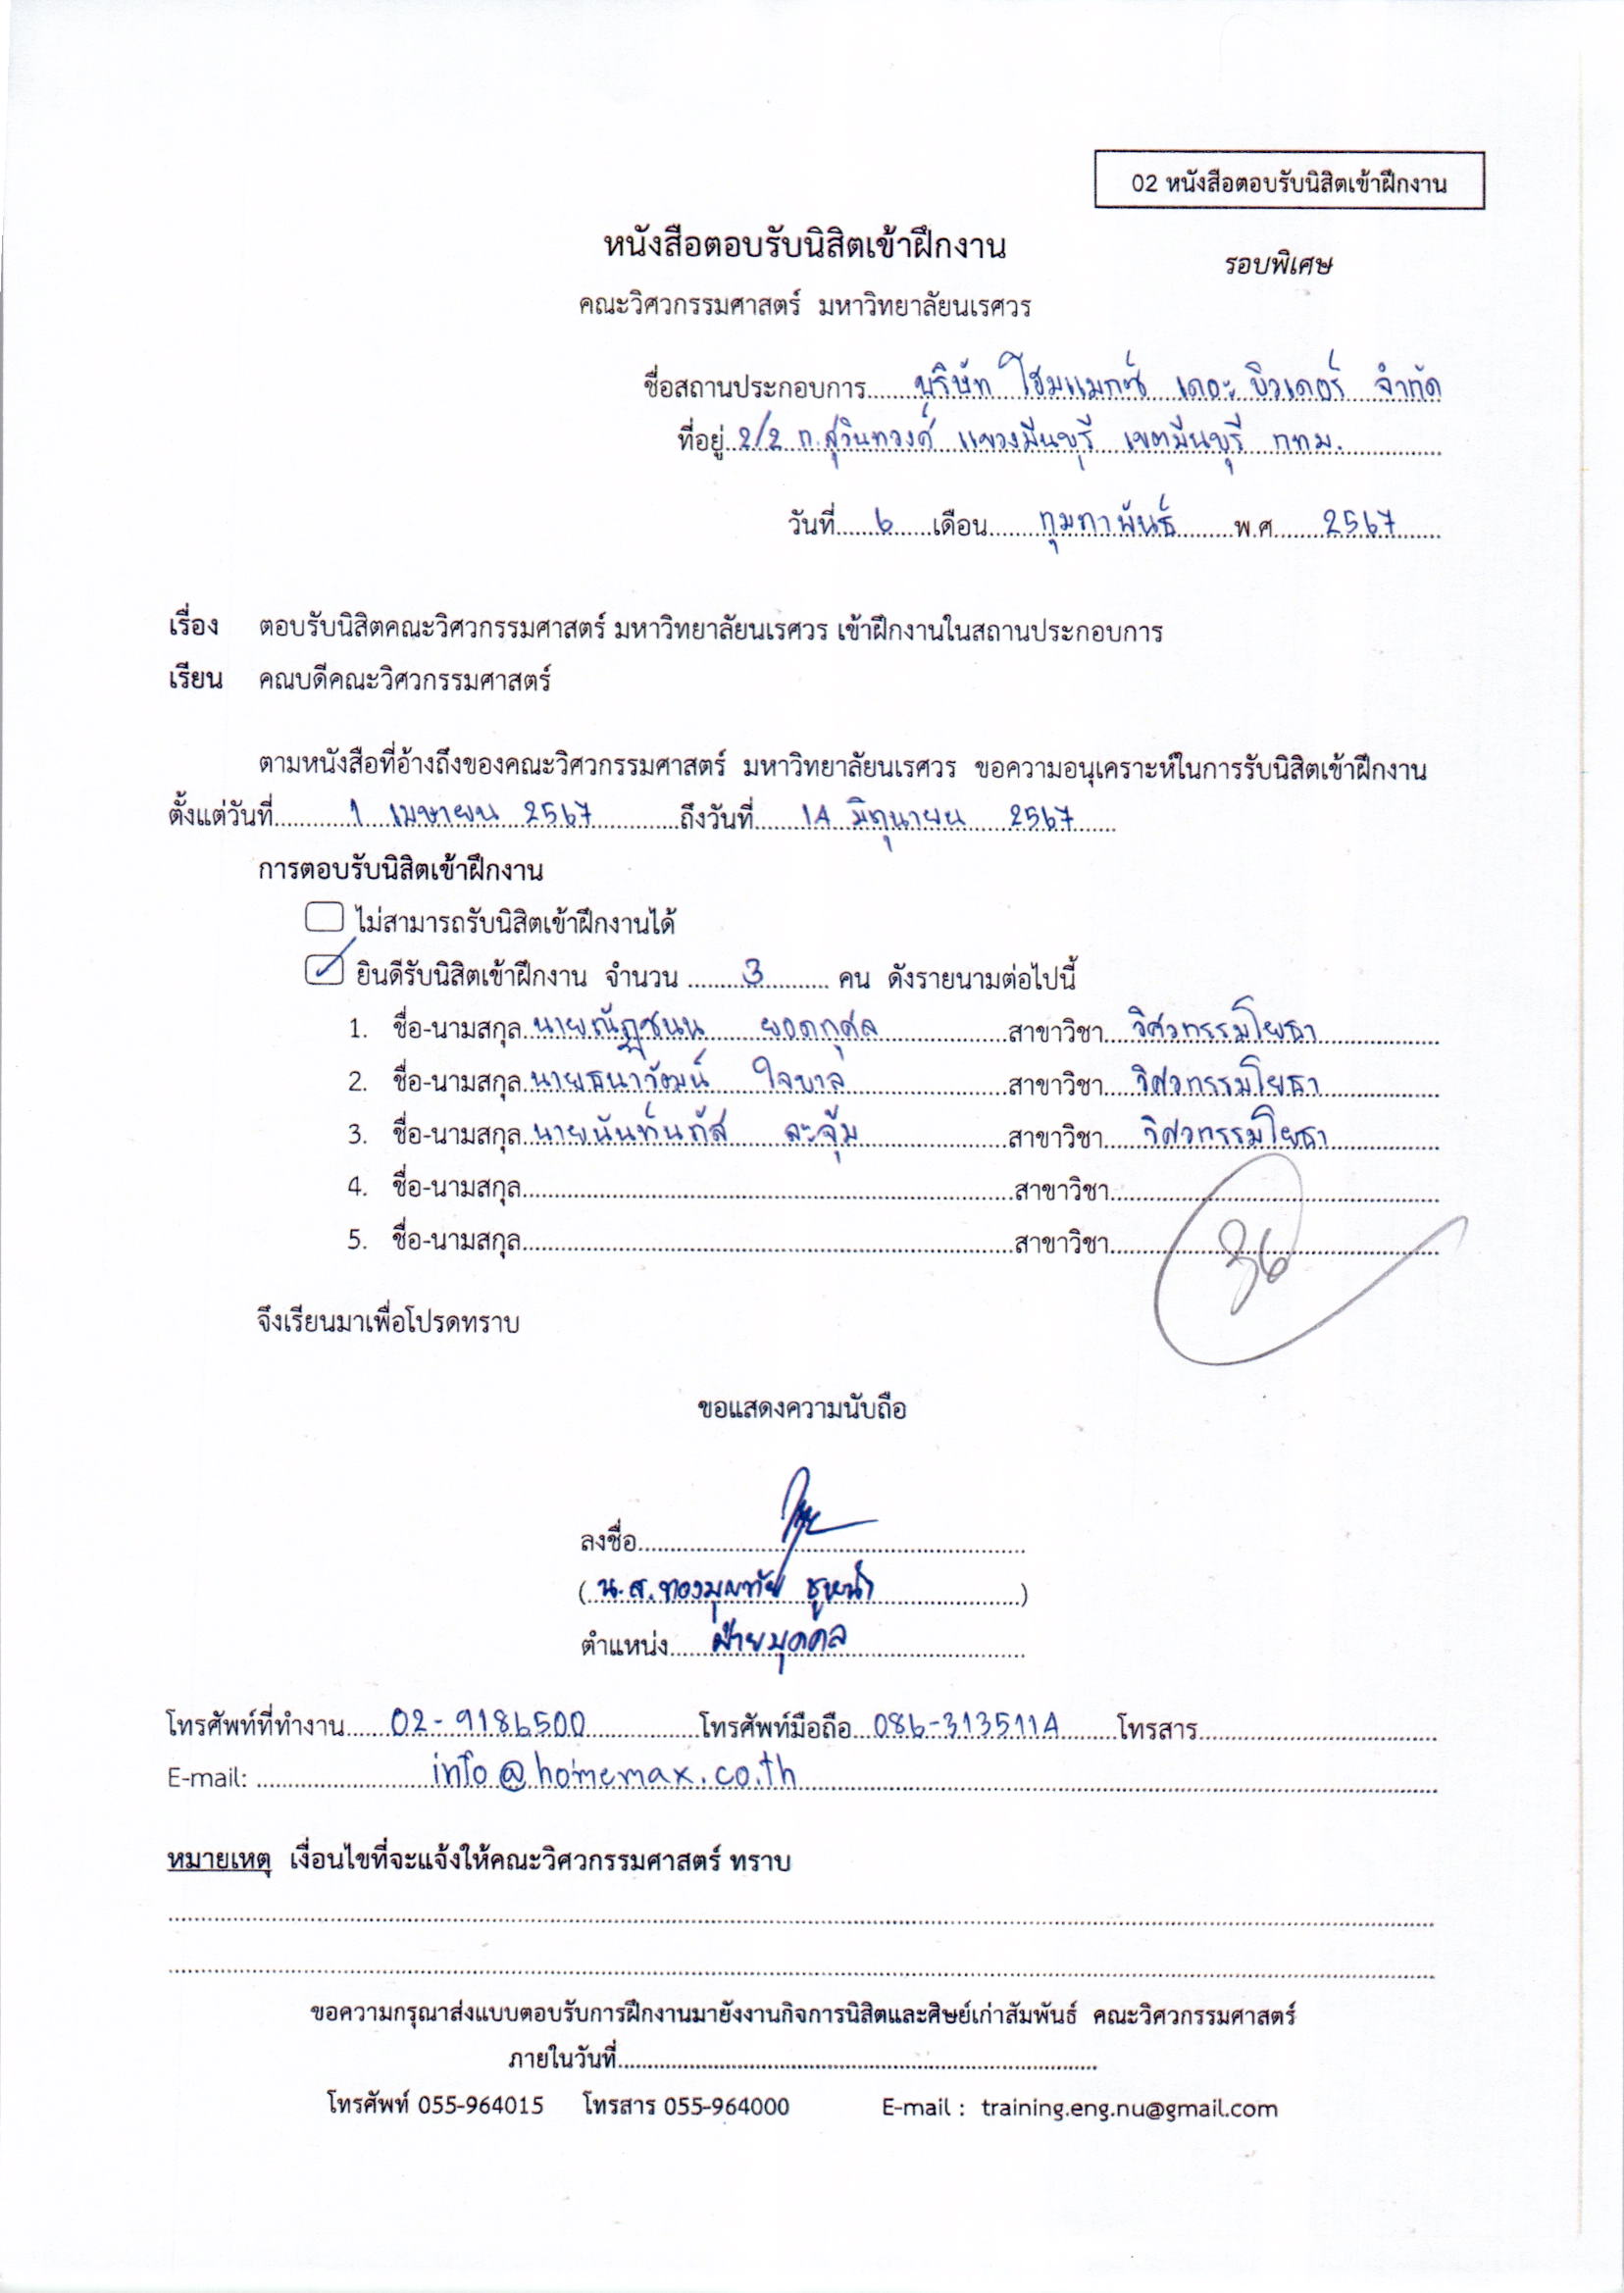 02 หนังสือตอบรับนิสิตเข้าฝึกงาน
หนังสือตอบรับนิสิตเข้าฝึกงาน
รอบพิเศษ
คณะวิศวกรรมศาสตร์ มหาวิทยาลัยนเรศวร
ชื่อสถานประกอบการ บริษัท โฮมแมกซ์ เดอะ บิวเดอร์ จำกัด
ที่อยู่ 2/2 ถ.สุวินทวงศ์ แขวงมีนบุรี เขตมีนบุรี กทม.
วันที่ 6 เดือน กุมภาพันธ์ พ.ศ. 2567
เรื่อง ตอบรับนิสิตคณะวิศวกรรมศาสตร์ มหาวิทยาลัยนเรศวร เข้าฝึกงานในสถานประกอบการ
เรียน คณบดีคณะวิศวกรรมศาสตร์
ตามหนังสือที่อ้างถึงของคณะวิศวกรรมศาสตร์ มหาวิทยาลัยนเรศวร ขอความอนุเคราะห์ในการรับนิสิตเข้าฝึกงาน
ตั้งแต่วันที่ 1 เมษายน 2567 ถึงวันที่ 14 มิถุนายน 2567
การตอบรับนิสิตเข้าฝึกงาน
ไม่สามารถรับนิสิตเข้าฝึกงานได้
ยินดีรับนิสิตเข้าฝึกงาน จำนวน 3 คน ดังรายนามต่อไปนี้
1. ชื่อ-นามสกุล นายณัฏชนน ยอดกุศล สาขาวิชา วิศวกรรมโยธา
2. ชื่อ-นามสกุล นายธนาวัฒน์ ใจบาล สาขาวิชา วิศวกรรมโยธา
3. ชื่อ-นามสกุล นายนันท์นภัส ละจุ้ม สาขาวิชา วิศวกรรมโยธา
4. ชื่อ-นามสกุล สาขาวิชา
5. ชื่อ-นามสกุล สาขาวิชา
จึงเรียนมาเพื่อโปรดทราบ
ขอแสดงความนับถือ
ลงชื่อ
(น.ส. )
ตำแหน่ง ฝ่ายบุคคล
โทรศัพท์ที่ทำงาน 02-9186500 โทรศัพท์มือถือ 086-3135114 โทรสาร
E-mail: info@homemax.co.th
หมายเหตุ เงื่อนไขที่จะแจ้งให้คณะวิศวกรรมศาสตร์ ทราบ
ขอความกรุณาส่งแบบตอบรับการฝึกงานมายังงานกิจการนิสิตและศิษย์เก่าสัมพันธ์ คณะวิศวกรรมศาสตร์
ภายในวันที่
โทรศัพท์ 055-964015 โทรสาร 055-964000 E-mail : training.eng.nu@gmail.com